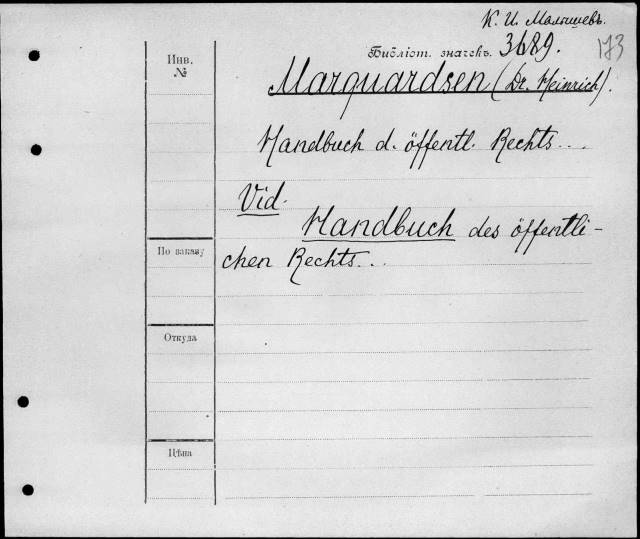 К. И. Малышевъ.
Библіот. значекъ. 3689. 173
Инв. №
Marquardsen (Dr. Heinrich).
Handbuch d. öffentl. Rechts...
Vid.
Handbuch des öffentli-
По заказу
chen Rechts...
Откуда
Цѣна